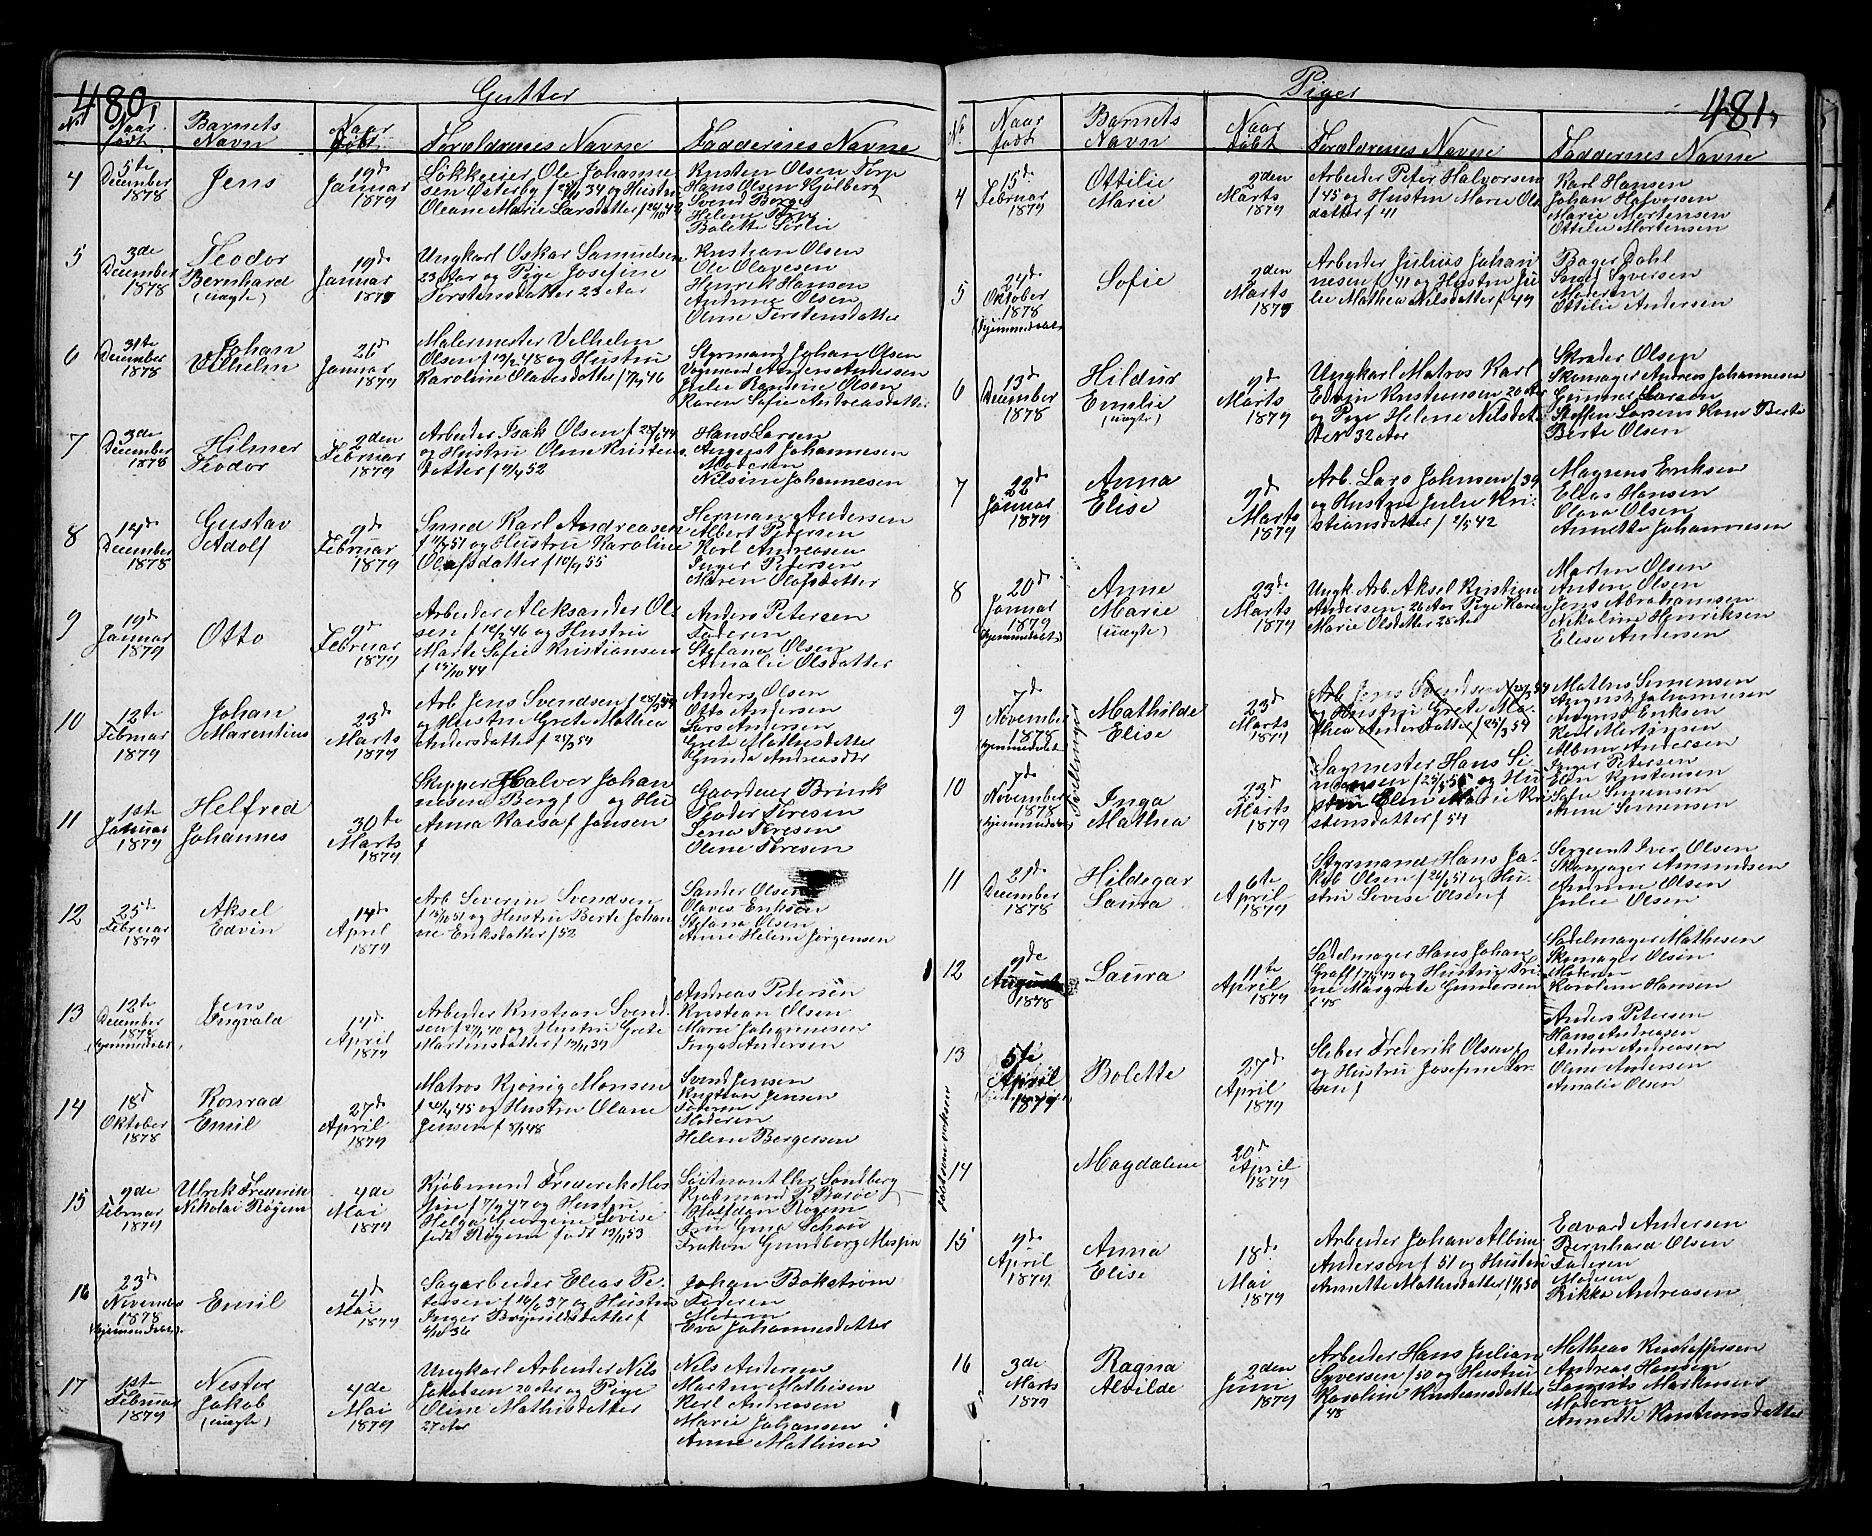 480,
Gutter
No
Naar født
Barnets Navn
Naar Døbt
Forældrenes Navne
Faddernes Navne
4
5te December 1878
Jens
19d Januar 1879
Løkkeeier Ole Johanne
sen Østerby f 34 og Hustru
Oleane Marie Larsdatter f
Kristen Olsen Torp
Hans Olsen Kjølberg
Svend Borge
Helene Torp
Bolette Sørlie
5
3de December 1878
Teodor
Bernhard
(uægte)
19d Januar 1879
Ungkarl Oskar Samuelsen
23 Aar og Pige Josefine
Torstensdatter 23 Aar
Kristian Olsen
Ole Olavesen
Henrik Hansen
Andrine Olsen
Oline Torstensdatter
6
31te December 1878
Johan
Vilhelm
26d Januar 1879
Malermester Vilhelm
Olsen f 13/2 48 og Hustru
Karoline Olavesdatter f 46
Styrmand Johan Olsen
Vognmand Andersen
Julie Olsen
Karen Sofie Andreasdatter
7
3de December 1878
Hilmer
Teodor
2den Februar 1879
Arbeider Isak Olsen f 44
og Hustru Oline Kristens
datter f 52
Hans Larsen
August Johannesen
Moderen
Nilsine Johannesen
8
14de December 1878
Gustav
Adolf
9d Februar 1879
Smed Karl Andreasen
f 51 og Hustru Karoline
Olafsdatter f 10/4 55
Herman Andersen
Albert Pedersen
Karl Andreasen
Inger Petersen
Maren Olafsdatter
9
19d Januar 1879
Otto
9d Februar 1879
Arbeider Aleksander Ol
sen f 46 og Hustru
Marte Sofie Kristiansen
f 10 44
Anders Petersen
Faderen
Stefana Olsen
Amalie Olsdatter
10
12te Februar 1879
Johan
Marentius
23d Marts 1879
Arb Jens Svendsen f
og Hustru Grete Mathea
Andersdatter f 25/3 54
Anders Olsen
Otto Andersen
Lars Andersen
Grete Mathisdatter
Gunda Andreasdtr
11
1ste Januar 1879
Helfred
Johannes
30te Marts 1879
Skipper Halvor Johan
nesen Berg f og Hu
Anna Jansen
f
Gaardeier Brink
Teodor Toresen
Lena Toresen
Oline Toresen
12
25d Februar 1879
Aksel
Edvin
14d April 1879
Arb Severin Svendsen
f 51 og Hustru Berte Johan
ne Eriksdatter f 52
Sander Olsen
Olaves Eriksen
Stefana Olsen
Anne Helene Jørgensen
13
12te December 1878
(hjemmedøbt)
Jens
Ingvald
14d April 1879
Arbeider Kristian Svend
sen f 40 og Hustru Grete
Martinsdatter f 39
Andreas Petersen
Kristian Olsen
Marie Johannesen
Inga Andersen
14
18d Oktober 1878
Konrad
Emil
27d April 1879
Matros Kjønig Monsen
f 45 og Hustru Olane
Jensen f 48
Svend Jensen
Kristian Jensen
Faderen
Moderen
Helene Bergersen
15
9de Februar 1879
Ulrik Frederik
Nikolai Røgem
4de Mai 1879
Kjøbmand Frederik Mes
sin f 47 og Hustru
Helga Georgene Lovise
født Røgem født 53
Løitnant Chr Sandberg
Kjøbmand
Halfdan Røgem
Fru Gina Schou
Frøken Gundborg Messin
16
23d November 1878
(hjemmedøbt)
Emil
4d Mai 1879
Sagarbeider Elias Pe
tersen f 37 og Hustru
Inger Bryrildsdatter f
36
Johan Bokstrøm
Faderen
Moderen
Eva Johannesdatter
17
1ste Februar 1879
Nestor
Jakob
(uægte)
4de Mai 1879
Ungkarl Arbeider Nils
Jakobsen 20 Aar og Pige
Oline Mathisdatter
27 Aar
Nils Andersen
Martin Mathisen
Karl Andreasen
Marie Johansen
Anne Mathisen
481,
Piger
No.
Naar født
Barnets Navn
Naar Døbt
Forældrenes Navne
Faddernes Navne
4
15d Februar 1879
Ottilie
Marie
2den Marts 1879
Arbeider Peter Halvorsen
f 45 og Hustru Marie Ols
datter f 41
Karl Hansen
Johan Halvorsen
Marie Mortensen
Ottilie Mortensen
5
24d Oktober 1878
(hjemmedøbt)
Sofie
2den Marts 1879
Arbeider Julius Johan
nesen f 41 og Hustru Ju
lie Mathea Nilsdatter f 49
Bager Dahl
Syversen
Moderen
Ottilie Andersen
6
13d December 1878
Hildur
Emilie
(uægte)
9d Marts 1879
Ungkarl Matros Karl
Edvin Kristensen 20 Aar
og Pige Helene Nilsdat
ter 32 Aar
Skræder Olsen
Skomager Andreas Johannesen
Gunner Larsen
Steffen Larsens Kone Berte
Berte Olsen
7
22d Januar 1879
Anna
Elise
9d Marts 1879
Arb. Lars Johnsen f 39
og Hustru Julie Kri
stiansdatter f 2/5 42
Magnus Eriksen
Ellas Hansen
Olava Olsen
Annette Johannesen
8
20d Januar 1879
(hjemmedøbt)
Anne
Marie
(uægte)
23d Marts 1879
Ungk. Arb. Aksel Kristian
Andersen 26 Aar Pige Karen
Marie Olsdatter 28 Aar
Martin Olsen
Anton Olsen
Jens Abrahamsen
Nikoline Henriksen
Elise Andersen
9
7d November 1878
(hjemmedøbt)
Tvillinger
Mathilde
Elise
23d Marts 1879
Arb Jens Svendsen f
og Hustru Grete Ma
thea Andersdatter f 25/3 54
Mathis Simensen
August Johannesen
August Eriksen
Karl Mortensen
Albine Andersen
10
7d November 1878
(hjemmedøbt)
Inga
Mathea
23d Marts 1879
Sagmester Hans Si
mensen f 55 og Hu
stru Elen Marie Kri
stensdatter f 54
Inger Petersen
Elen Kristensen
Sofie Simensen
Anne Simensen
11
21d December 1878
Hildegar
Laura
6te April 1879
Styrmand Hans Ja
kob Olsen f 51 og Hu
stru Lovise Olsen f
Sergeant Iver Olsen
Skomager Amundsen
Andrine Olsen
Julie Olsen
12
9de August 1878
Laura
11te April 1879
Sadelmager Hans Johan
Graff f 43 og Hustru Tri
ne Margrete Gundersen
f 48
Sadelmager Mathesen
Skomager Olsen
Moderen
Karoline Hansen
13
5te April 1879
Bolette
27d April 1879
Sleber Frederik Olsen f
og Hustru Josefine Lar
sen f
Anders Petersen
Hans Andreasen
Anton Andreasen
Oline Andersen
Amalie Olsen
14
døbt som voksen
Magdalene
20d April 1879
15
9d April 1879
Anna
Elise
18de Mai 1879
Arbeider Johan Albin
Andersen f 51 og Hustru
Annette Mathisdatter f 50
Edvard Andersen
Bernhard Olsen
Faderen
Moderen
Rikka Andreasen
16
3de Marts 1879
Ragna
Alvilde
2den Juni 1879
Arbeider Hans Julian
Syversen f 50 og Hustru
Karoline Kristiansdatter
f 48
Matheas Kristoffersen
Andreas Hansen
Laurits Martinsen
Moderen
Annette Kristiansdatter